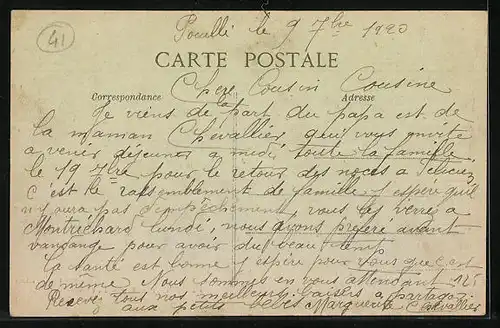 41
Pouillé le 9 7bre 1920
CARTE POSTALE
Chere Cousin Cousine
Correspondance
Adresse
Je viens de la part du papa et de
La maman Chevallier, qui vous invite
a venir déjeuner a midi toute la famille
le 19 7bre pour le retour des noces a
c'est le rassemblement de famille j'espere qu'il
n'y aura pas d'empêchement, vous les verrez a
Montrichard Lundi, nous avons préféré avant
vandange pour avoir du beau temps
La santé est bonne j'espère pour vous que c'est
de même. Nous sommes en vous attendant
Recevez tous nos meilleurs baisers a partager
aux petits bébés Marguerite Chevallier